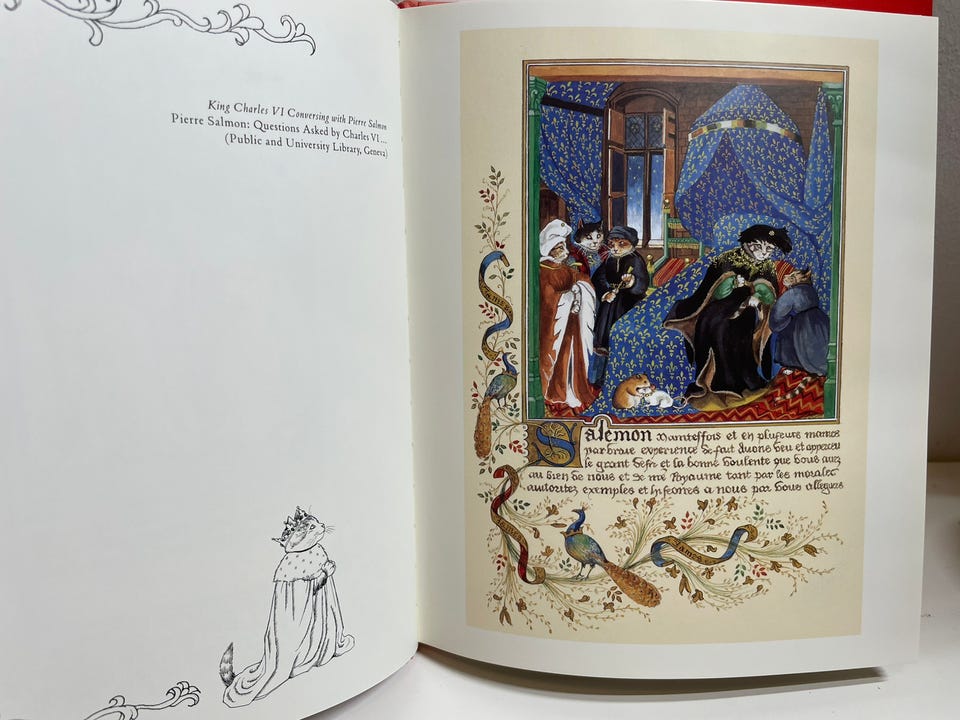 King Charles VI Conversing with Pierre Salmon
Pierre Salmon: Questions Asked by Charles VI ...
(Public and University Library, Geneva)
Salemon Maintesfois et en pluseurs manies
par vraie experience de fait avons veu et apperceu
le grant desir et la bonne voulente que vous avez
au bien de nous et de nre Royaume tant par les morales
autoritez exemples et histoires a nous par vous alleguees